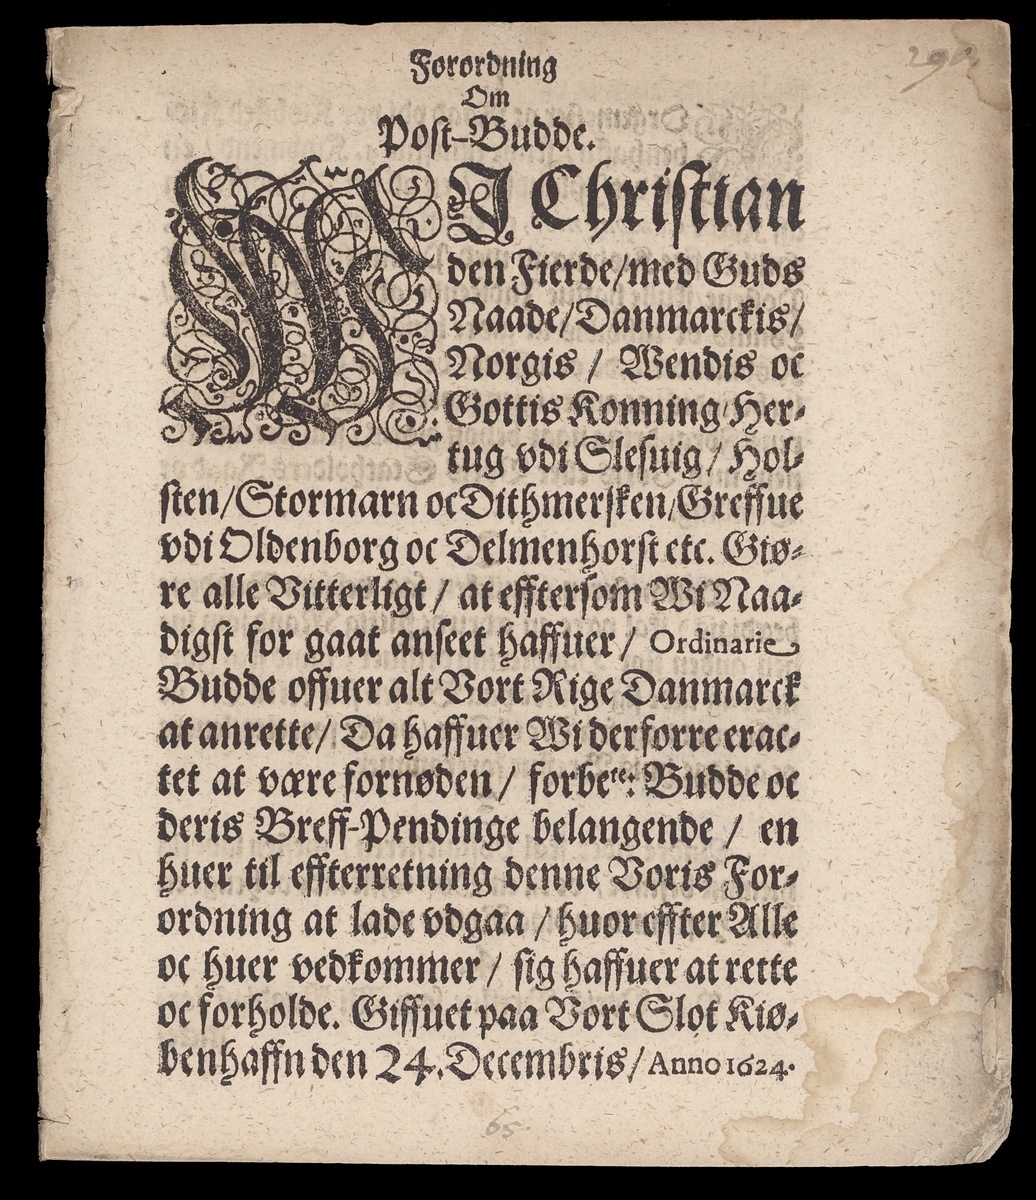 290.
Forordning
Om
Post-Budde.
WJ Christian
den Fierde/med Guds
Naade/Danmarckis/
Norgis / Wendis oc
Gottis Konning/Her-
tug vdi Slesuig/ Hol-
sten/Stormarn oc Dithmersken/Greffue
vdi Oldenborg oc Delmenhorst etc. Giø-
re alle Vitterligt / at efftersom Wi Naa-
digst for gaat anseet haffuer / Ordinarie
Budde offuer alt Vort Rige Danmarck
at anrette/ Da haffuer Wi derforre erac-
tet at være fornøden / forbete: Budde oc
deris Breff-Pendinge belangende / en
huer til effterretning denne Voris For-
ordning at lade vdgaa / huor effter Alle
oc huer vedkommer / sig haffuer at rette
oc forholde. Giffuet paa Vort Slot Kiø-
benhaffn den 24. Decembris/ Anno 1624.
65.